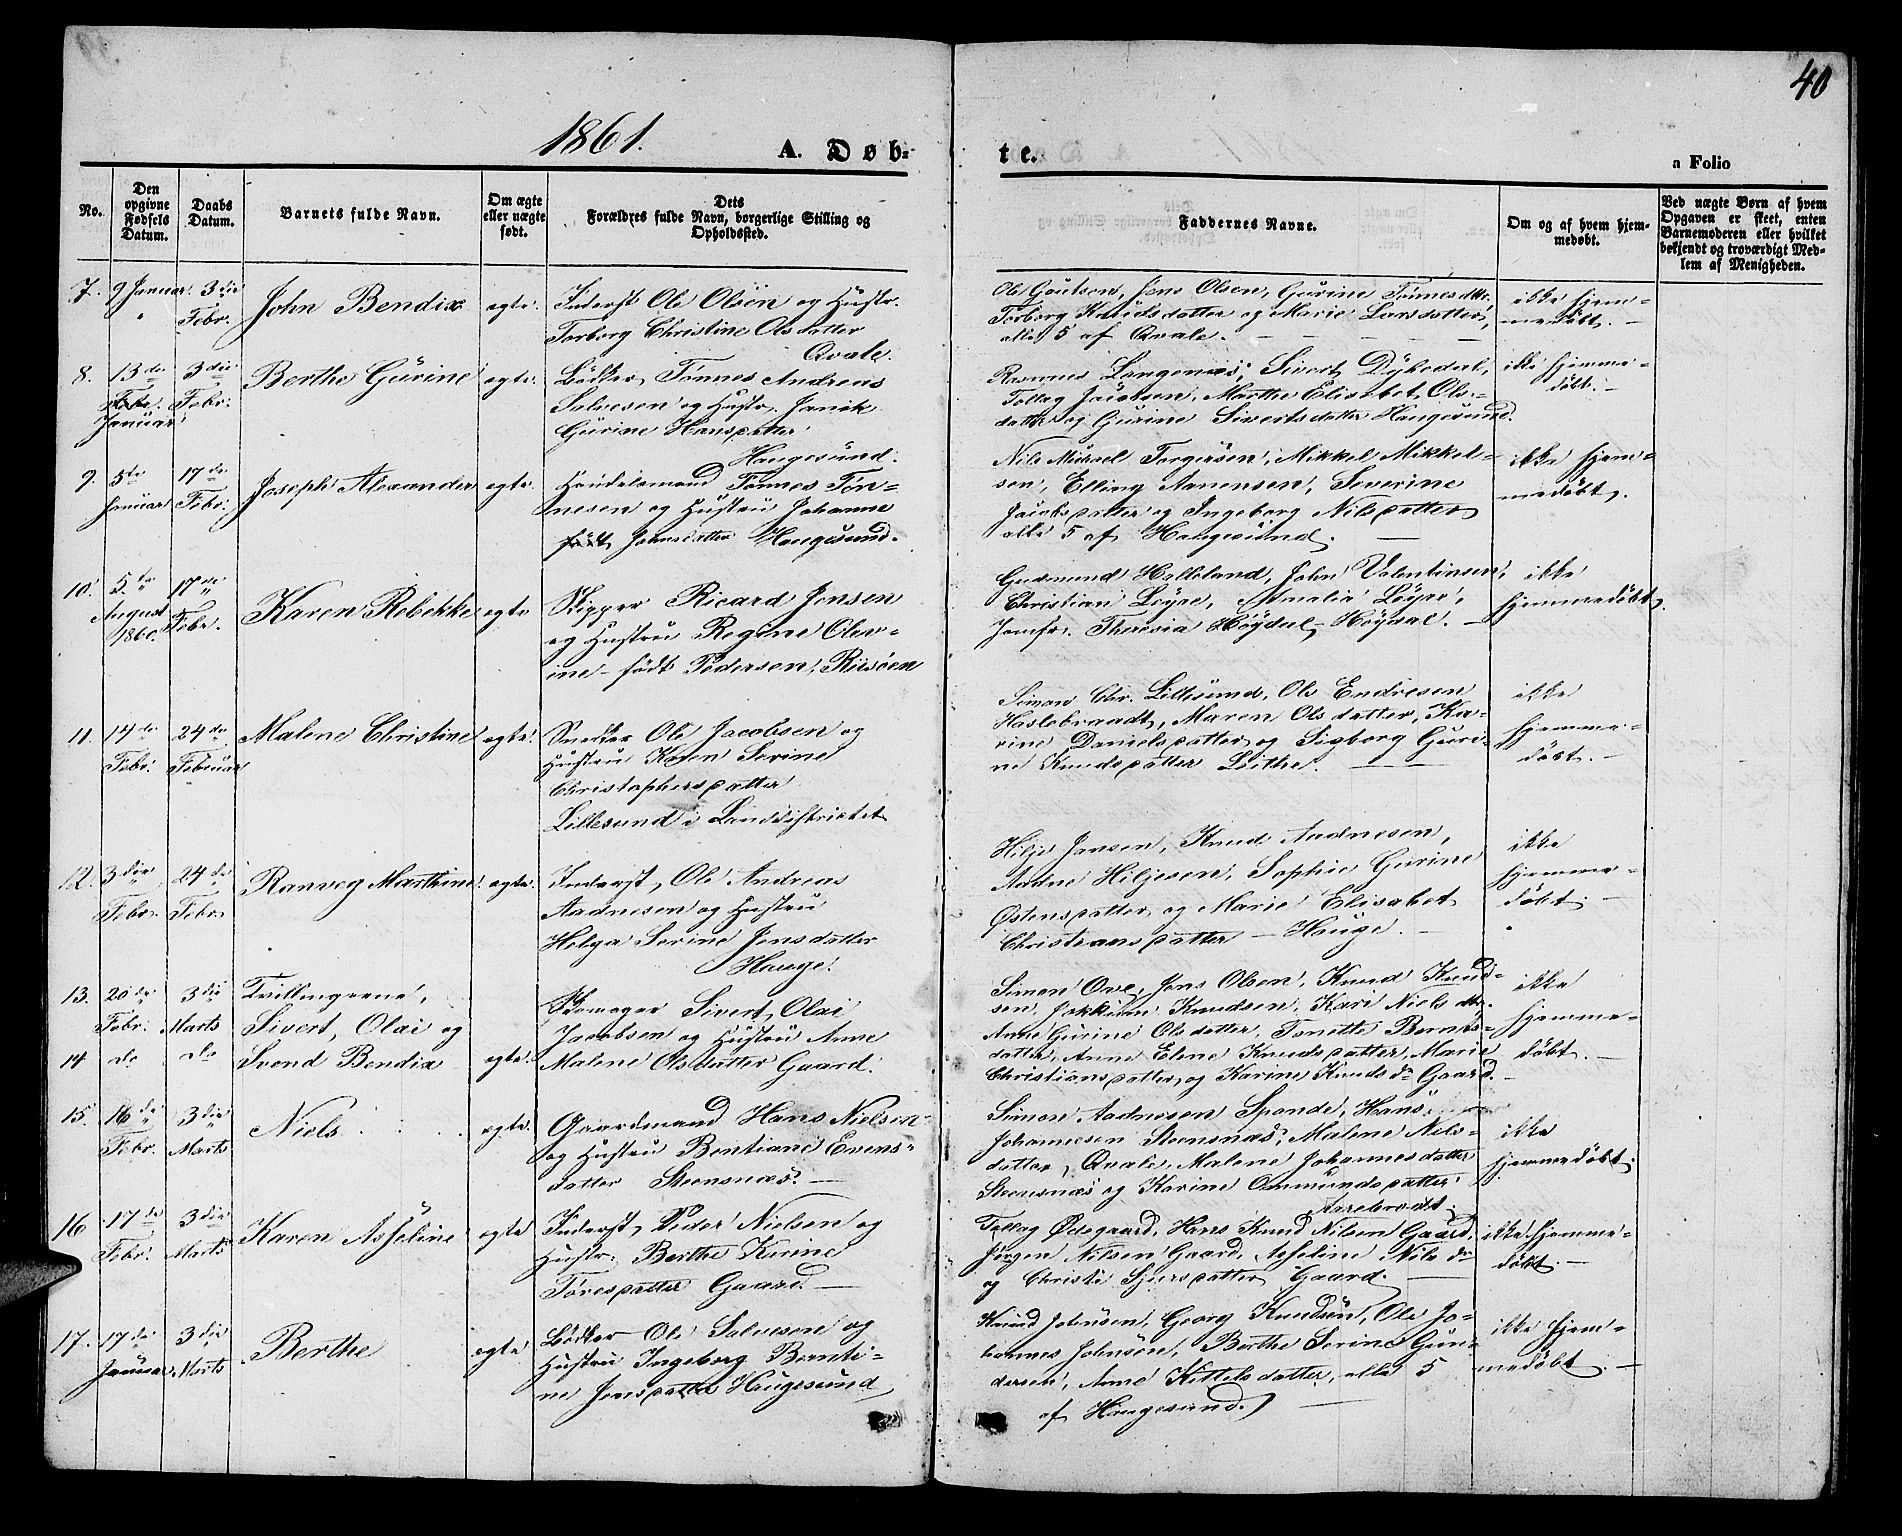 40
1861.
A. Døb-
te.
a Folio
No.
Den opgivne Fødsels Datum.
Daabs Datum.
Barnets fulde Navn.
Om ægte eller uægte født.
Dets Forældres fulde Navn, borgerlige Stilling og Opholdssted.
Faddernes Navne.
Om og af hvem hjemmedøbt.
Ved uægte Børn af hvem Opgaven er skeet, enten Barnemoderen eller hvilket bekjendt og troværdigt Medlem af Menigheden.
7. 9 Januar. 3die Febr.
John Bendix
egte.
Inderst Ole Olsen og Hustr.
Torborg Christine Olsdatter
Qvale.
Ole Goutson, Jens Olsen, Gurine Tønnesdtr.
Torborg Knudsdatter og Marie Larsdatter,
alle 5 af Qvale.
ikke hjem-
medøbt.
8. 13de Januar 3die Febr.
Berthe Gurine
egte.
Bødker Tønnes Andreas
Salvesen og Hustr. Janik
Gurine Hansdatter
Haugesund.
Rasmus Langenæs, Sivert Dybedal,
Tollag Jacobsen, Marthe Elisabet Ols-
datter og Gurine Sivertsdatter Haugesund.
ikke hjemme-
døbt.
9. 5te Januar 17de Febr.
Joseph Alexander
egte.
Handelsmand Tønnes Tøn-
nesen og Hustru Johanne
født Johnsdatter Haugesund.
Nils Michael Torgersen, Mikkel Mikkel-
sen, Elling Aanensen, Severine
Jacobsdatter og Ingeborg Nilsdatter
alle 5 af Haugesund.
ikke hjem-
medøbt.
10. 5te August 1860. 17de Febr.
Karen Rebekke
egte
Skipper Ricard Jensen
og Hustru Regine Olev-
ine født Pedersen, Risøen
Gudmund Helleland, John Valentinsen,
Christian Løyre, Amalia Løyre,
Jomfr. Theresia Høydal, Høydal.
ikke
hjemmedøbt
11. 14de Febr. 24de Februar
Malene Christine
egte.
Snedker Ole Jacobsen og
Hustru Karen Serine
Christophersdatter
Lillesund i Landdistrictet
Simon Chr. Lillesund, Ole Endresen
Haslebraadt, Maren Olsdatter, Ka-
rine Danielsdatter og Sigborg Guri-
ne Knudsdatter Leithe.
ikke
hjemme-
døbt.
12. 3die Febr. 24de Febr.
Ranveg Marthine
egte.
Inderst Ole Andreas
Aadnesen og Hustru
Helga Serine Jensdatter
Hauge.
Hilje Jansen, Knud Aadnesen,
Aadne Hiljesen, Sophie Gurine
Østensdatter og Marie Elisabet
Christiansdatter Hauge.
ikke
hjemme-
døbt.
13. 20de Febr. 3die Marts
Tvillingerne,
Sivert Olai og
14 do do
Svend Bendix
egte.
Skomager Sivert Olai
Jacobsen og Hustru Anne
Malene Olsdatter Gaard.
Simon Ove, Jens Olsen, Knud Knud-
sen, Jokkum Knudsen, Kari Niels dtr.
Anne Gurine Olsdatter, Tonette Bernts-
datter, Anne Elene Knudsdatter, Marie
Christiansdatter og Karine Knuds dr Gaard.
ikke
hjemme-
døbt.
15. 16de Febr. 3die Marts
Niels
egte.
Gaardmand Hans Nielsen
og Hustru Bentiane Evens-
datter Steensnæs.
Simon Aadnesen Spande, Hans
Johannesen Steensnæs, Malene Nils-
datter Qvale, Malene Johannesdatter
Steensnæs og Karine Ommundsdatter
Aarebrodt.
ikke
hjemmedøbt.
16 17de Febr. 3die Marts
Karen Asseline
egte
Inderst Peder Nielsen og
Hustr. Berthe Kirine
Toresdatter Gaard.
Tollag Ødegaard, Hans Knud Nilsen Gaard,
Jørgen Nilsen Gaard, Asseline Nils dr
og Christi Sjursdatter Gaard.
ikke hjemme-
døbt.
17. 17de Januar 3die Marts
Berthe
egte
Bødker Ole Salvesen og
Hustru Ingeborg Bernti-
ne Jensdatter Haugesund
Knud Johnsen, Georg Knudsen, Ole Jo-
hannes Johnsen, Berthe Serine Gun-
dersen, Anne Kittelsdatter, alle 5
af Haugesund.
ikke hjem-
medøbt.